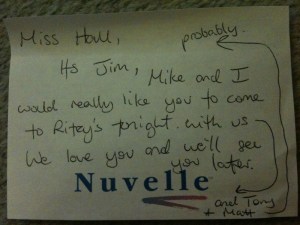 Miss Hall,
probably.
Its Jim, Mike and I
would really like you to come
to Ritzy's tonight. with us
We love you and we'll see
you later.
Nuvelle
and Tony
+ Matt